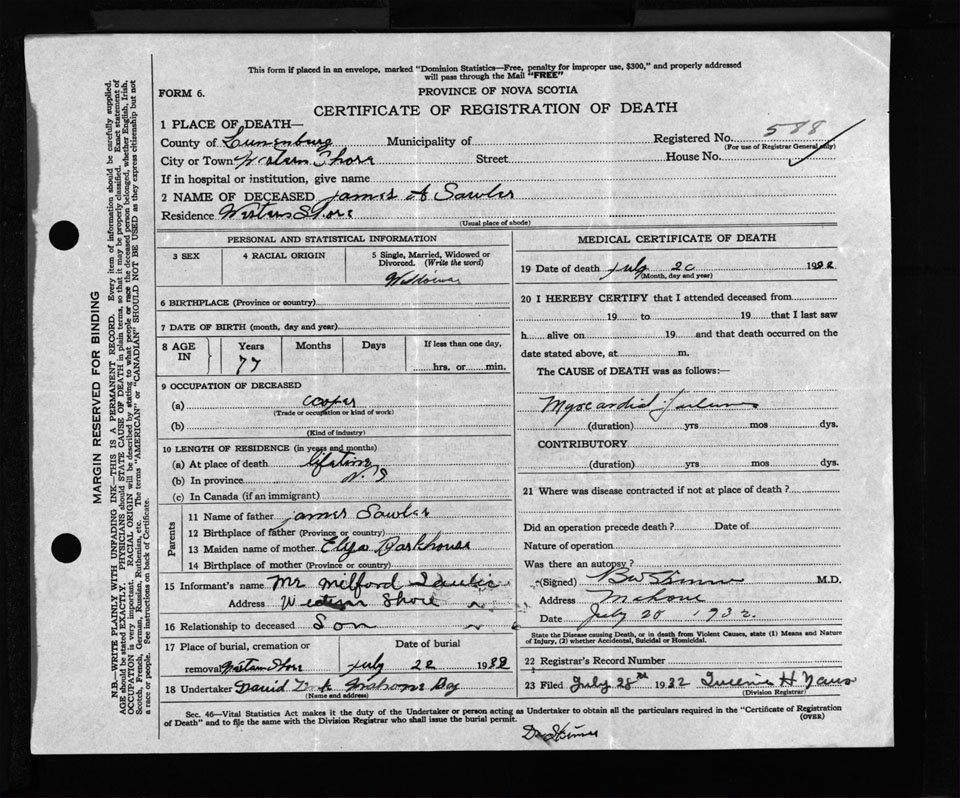 This form if placed in an envelope, marked "Dominion Statistics—Free, penalty for improper use, $300," and properly addressed
will pass through the Mail "FREE"
FORM 6.
PROVINCE OF NOVA SCOTIA
CERTIFICATE OF REGISTRATION OF DEATH
1 PLACE OF DEATH—
County of Lunenburg Municipality of Registered No. 588
(For use of Registrar General only)
City or Town Western Shore Street House No.
If in hospital or institution, give name
2 NAME OF DECEASED James A Sawler
Residence Western Shore
(Usual place of abode)
PERSONAL AND STATISTICAL INFORMATION
3 SEX 4 RACIAL ORIGIN 5 Single, Married, Widowed or
Divorced. (Write the word)
6 BIRTHPLACE (Province or country)
7 DATE OF BIRTH (month, day and year)
8 AGE IN Years Months Days If less than one day,
77 hrs. or min.
9 OCCUPATION OF DECEASED
(a) Cooper
(Trade or occupation or kind of work)
(b)
(Kind of industry)
10 LENGTH OF RESIDENCE (in years and months)
(a) At place of death lifetime
(b) In province N.S
(c) In Canada (if an immigrant)
Parents
11 Name of father James Sawler
12 Birthplace of father (Province or country)
13 Maiden name of mother Elya Barkhouse
14 Birthplace of mother (Province or country)
15 Informant's name Mr Milford Sawler
Address Western Shore
16 Relationship to deceased Son
17 Place of burial, cremation or Date of burial
removal Western Shore July 22 1932
18 Undertaker David Mahone Bay
(Name and address)
MEDICAL CERTIFICATE OF DEATH
19 Date of death July 20 1932
(Month, day and year)
20 I HEREBY CERTIFY that I attended deceased from
19 to 19 that I last saw
h alive on 19 and that death occurred on the
date stated above, at m.
The CAUSE of DEATH was as follows:—
Myocardial failure
(duration) yrs mos dys.
CONTRIBUTORY
(duration) yrs mos dys.
21 Where was disease contracted if not at place of death?
Did an operation precede death? Date of
Nature of operation
Was there an autopsy?
(Signed) M.D.
Address Mahone
Date July 20 1932
State the Disease causing Death, or in death from Violent Causes, state (1) Means and Nature
of Injury, (2) whether Accidental, Suicidal or Homicidal.
22 Registrar's Record Number
23 Filed July 28th 1932
(Division Registrar)
Sec. 46—Vital Statistics Act makes it the duty of the Undertaker or person acting as Undertaker to obtain all the particulars required in the "Certificate of Registration
of Death" and to file the same with the Division Registrar who shall issue the burial permit. (OVER)
Dr Skinner
MARGIN RESERVED FOR BINDING
N.B.—WRITE PLAINLY WITH UNFADING INK—THIS IS A PERMANENT RECORD. Every item of information should be carefully supplied.
AGE should be stated EXACTLY. PHYSICIANS should STATE CAUSE OF DEATH in plain terms, so that it may be properly classified. Exact statement of
OCCUPATION is very important. RACIAL ORIGIN will be described by stating to what people or race the deceased person belonged, whether English, Irish,
Scotch, French, German, Russian, Ruthenian, etc. The terms "AMERICAN" or "CANADIAN" SHOULD NOT BE USED as they express citizenship but not
a race or people. See instructions on back of Certificate.